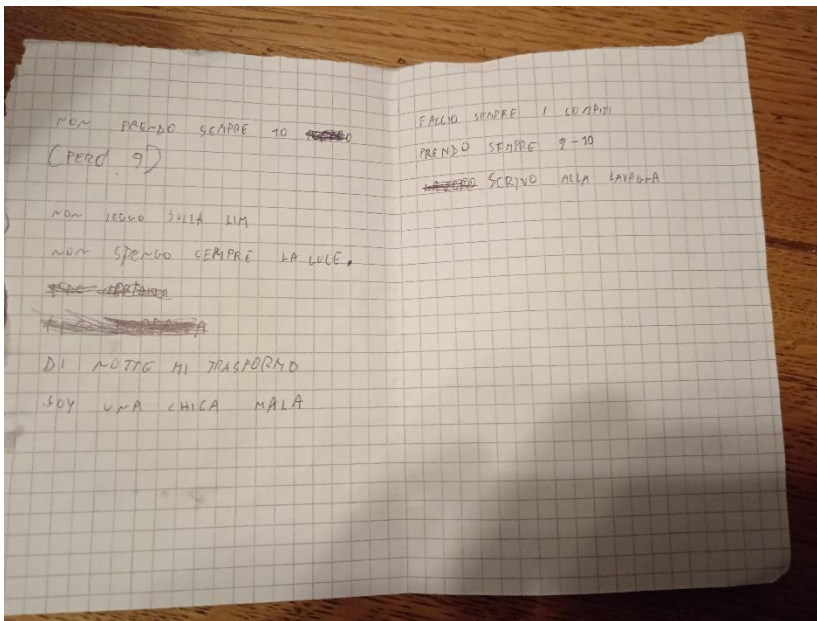 NON PRENDO SEMPRE 10
(PERO' 9)
NON LEGGO SULLA LIM
NON SPENGO SEMPRE LA LUCE.
DI NOTTE MI TRASFORMO
SOY UNA CHICA MALA
FACCIO SEMPRE I COMPITI
PRENDO SEMPRE 9-10
SCRIVO ALLA LAVAGNA